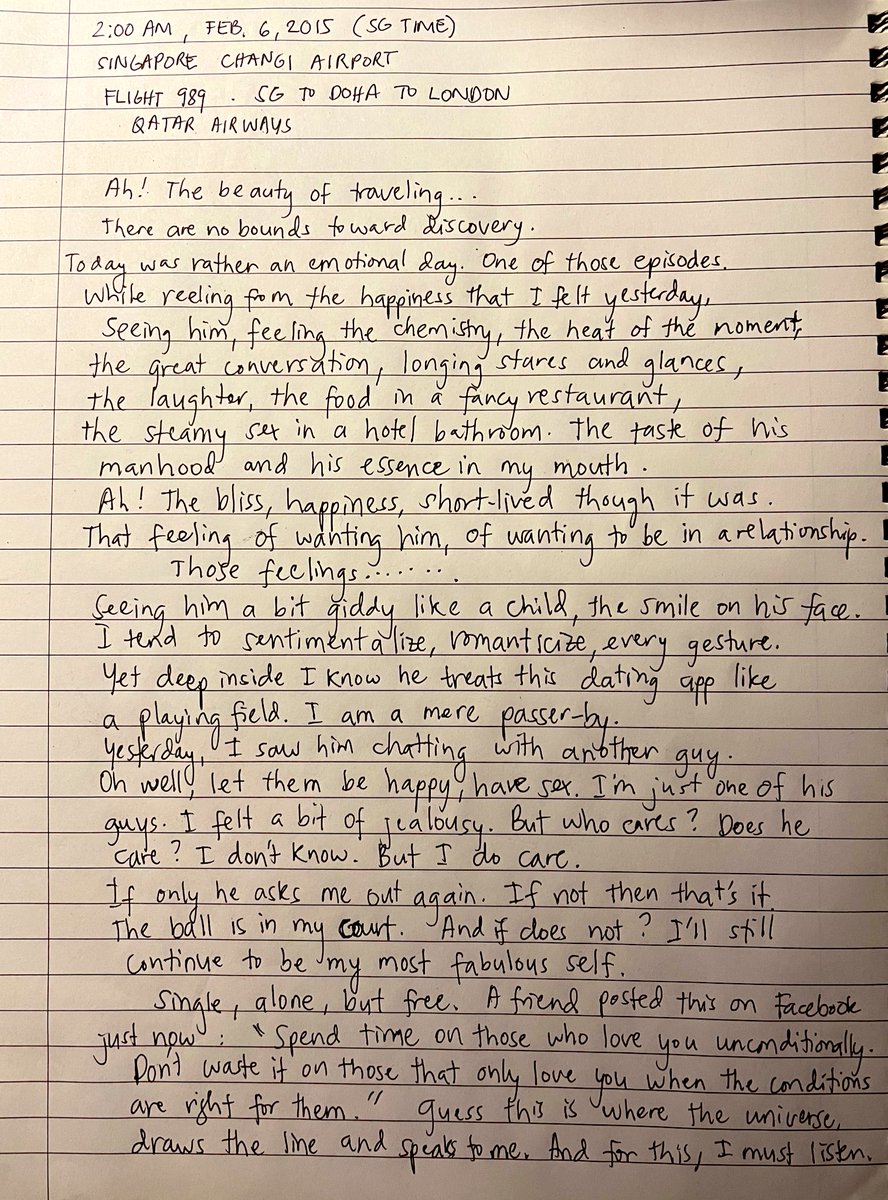 2:00 AM, FEB. 6, 2015 (SG TIME)
SINGAPORE CHANGI AIRPORT
FLIGHT 989. SG TO DOHA TO LONDON
QATAR AIRWAYS
Ah! The beauty of traveling...
There are no bounds toward discovery.
Today was rather an emotional day. One of those episodes.
While reeling from the happiness that I felt yesterday,
Seeing him, feeling the chemistry, the heat of the moment,
the great conversation, longing stares and glances,
the laughter, the food in a fancy restaurant,
the steamy sex in a hotel bathroom. The taste of his
manhood and his essence in my mouth.
Ah! The bliss, happiness, short-lived though it was.
That feeling of wanting him, of wanting to be in a relationship.
Those feelings.......
Seeing him a bit giddy like a child, the smile on his face.
I tend to sentimentalize, romanticize, every gesture.
Yet deep inside I know he treats this dating app like
a playing field. I am a mere passer-by.
Yesterday, I saw him chatting with another guy.
Oh well, let them be happy, have sex. I'm just one of his
guys. I felt a bit of jealousy. But who cares? Does he
care? I don't know. But I do care.
If only he asks me out again. If not then that's it.
The ball is in my court. And if does not? I'll still
continue to be my most fabulous self.
Single, alone, but free. A friend posted this on Facebook
just now: "Spend time on those who love you unconditionally.
Don't waste it on those that only love you when the conditions
are right for them." Guess this is where the universe
draws the line and speaks to me. And for this, I must listen.